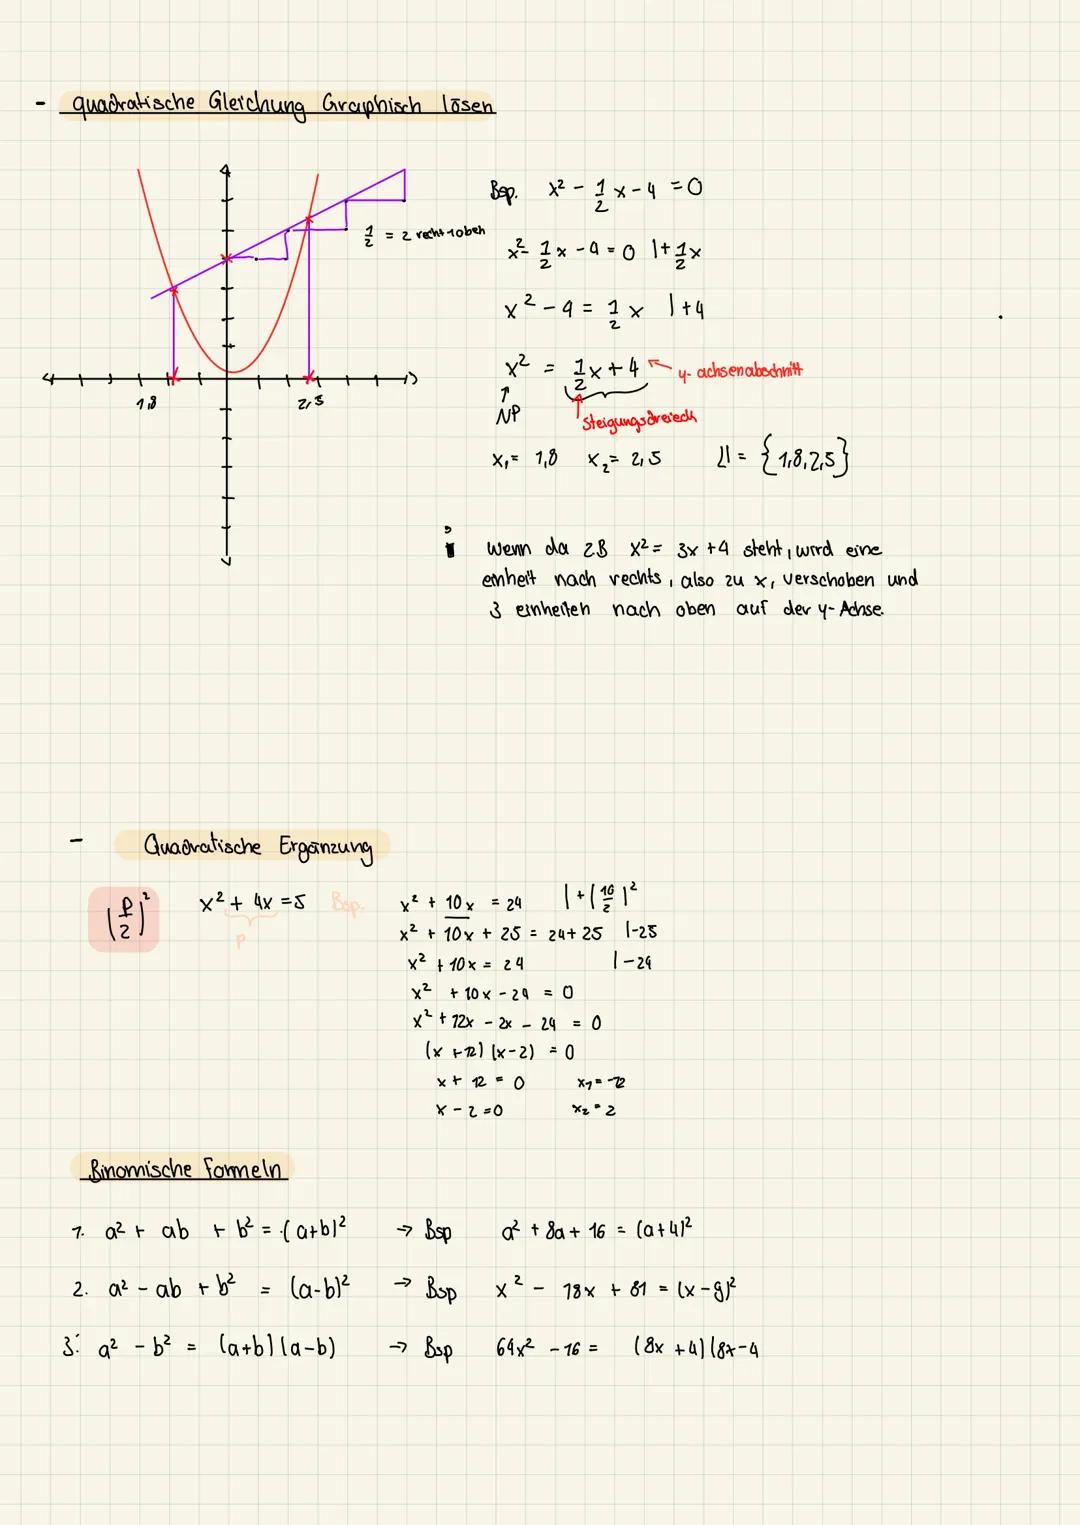 - quadratische Gleichung Graphisch lösen
Bsp. x² - 1/2 x - 4 = 0
1/2 = 2 recht 1 oben
x² - 1/2 x - 4 = 0 |+ 1/2 x
x² - 4 = 1/2 x | + 4
x² = 1/2 x + 4 ← y-achsenabschnitt
↑ NP
↑ Steigungsdreieck
1,8 2,5
x₁ = 1,8 x₂ = 2,5 𝕃 = {1,8, 2,5}
Wenn da zB x² = 3x + 4 steht, wird eine
einheit nach rechts, also zu x, verschoben und
3 einheiten nach oben auf der y-Achse.
- Quadratische Ergänzung
(p/2)² x² + 4x = 5 Bsp. x² + 10x = 24 | + (10/2)²
p
x² + 10x + 25 = 24 + 25 | -25
x² + 10x = 24 | - 24
x² + 10x - 24 = 0
x² + 12x - 2x - 24 = 0
(x + 12) (x - 2) = 0
x + 12 = 0 x₁ = -12
x - 2 = 0 x₂ = 2
Binomische Formeln
1. a² + ab + b² = (a+b)² → Bsp a² + 8a + 16 = (a+4)²
2. a² - ab + b² = (a-b)² → Bsp x² - 18x + 81 = (x-9)²
3. a² - b² = (a+b)(a-b) → Bsp 64x² - 16 = (8x + 4)(8x-4